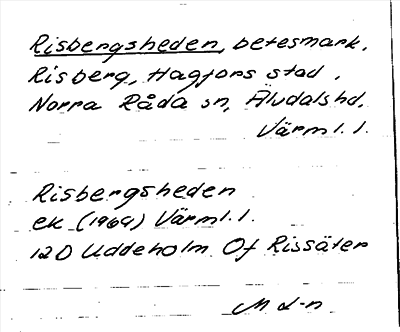 Risbergsheden, betesmark,
Risberg, Hagfors stad,
Norra Råda sn, Älvdals hd,
Värml. l.
Risbergsheden
ek (1969) Värml. l.
12D Uddeholm Of Rissäter
M L-n